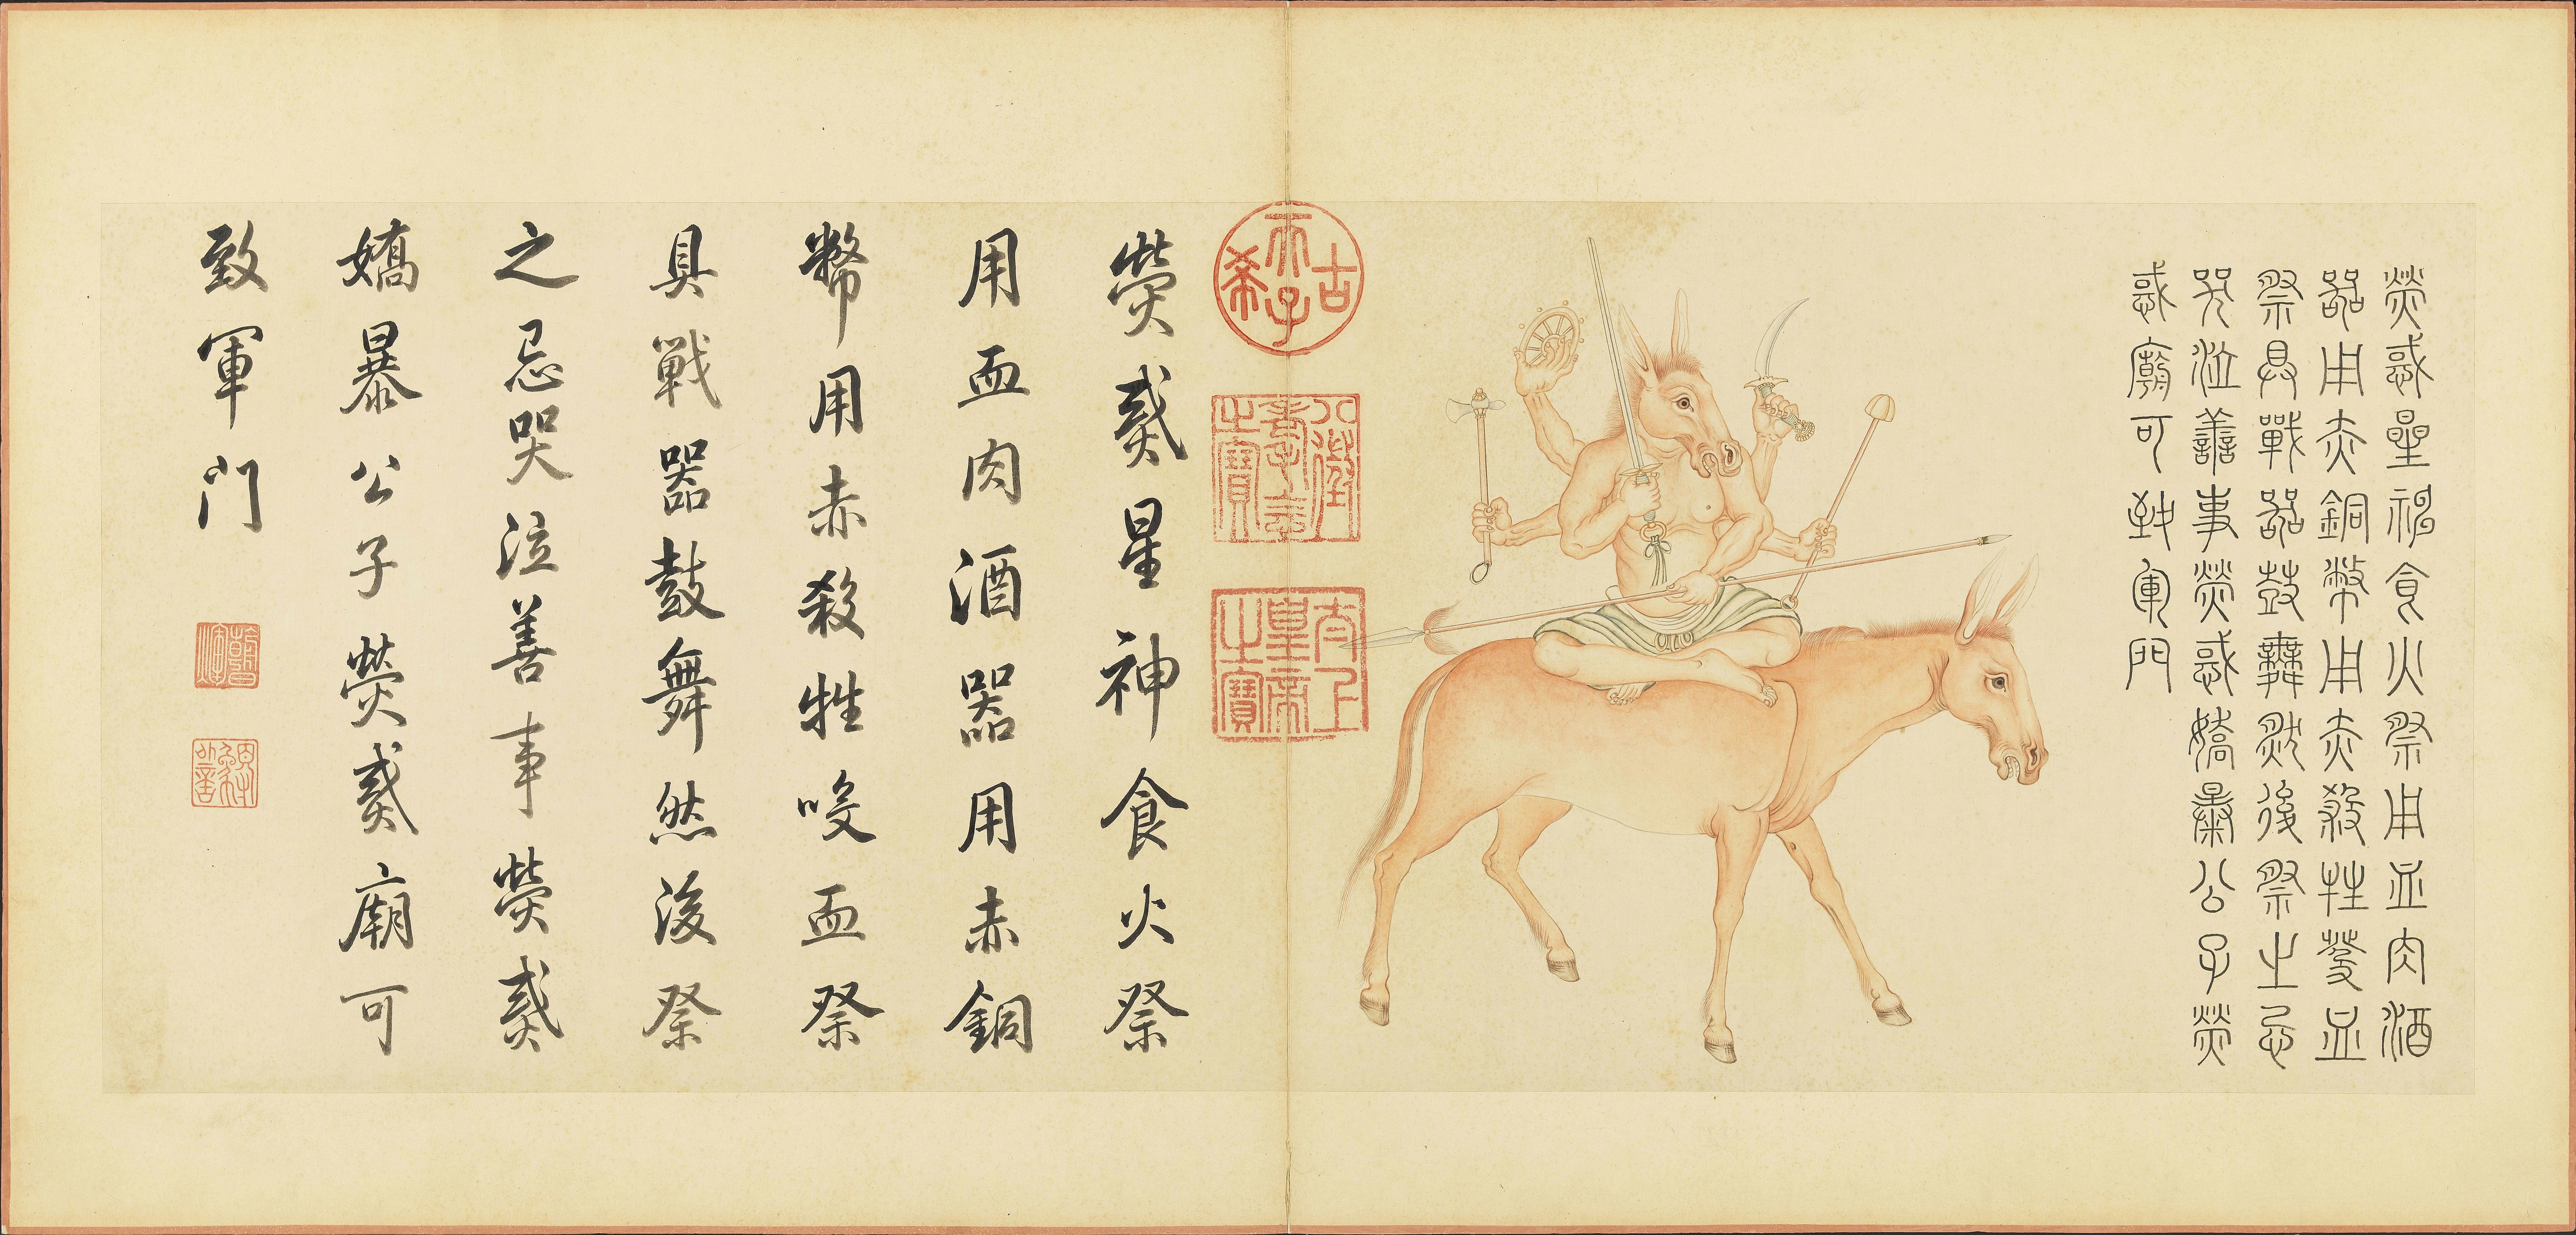 熒惑星神食火祭用血肉酒
器用赤銅幣用赤殺牲血
祭具戰器鼓舞然後祭之忌
哭泣善事熒惑嬌暴公子熒
惑廟可致軍門
古稀天子
八徵耄念之寶
太上皇帝之寶
熒惑星神食火祭
用血肉酒器用赤銅
幣用赤殺牲咬血祭
具戰器鼓舞然後祭
之忌哭泣善事熒惑
嬌暴公子熒惑廟可
致軍門